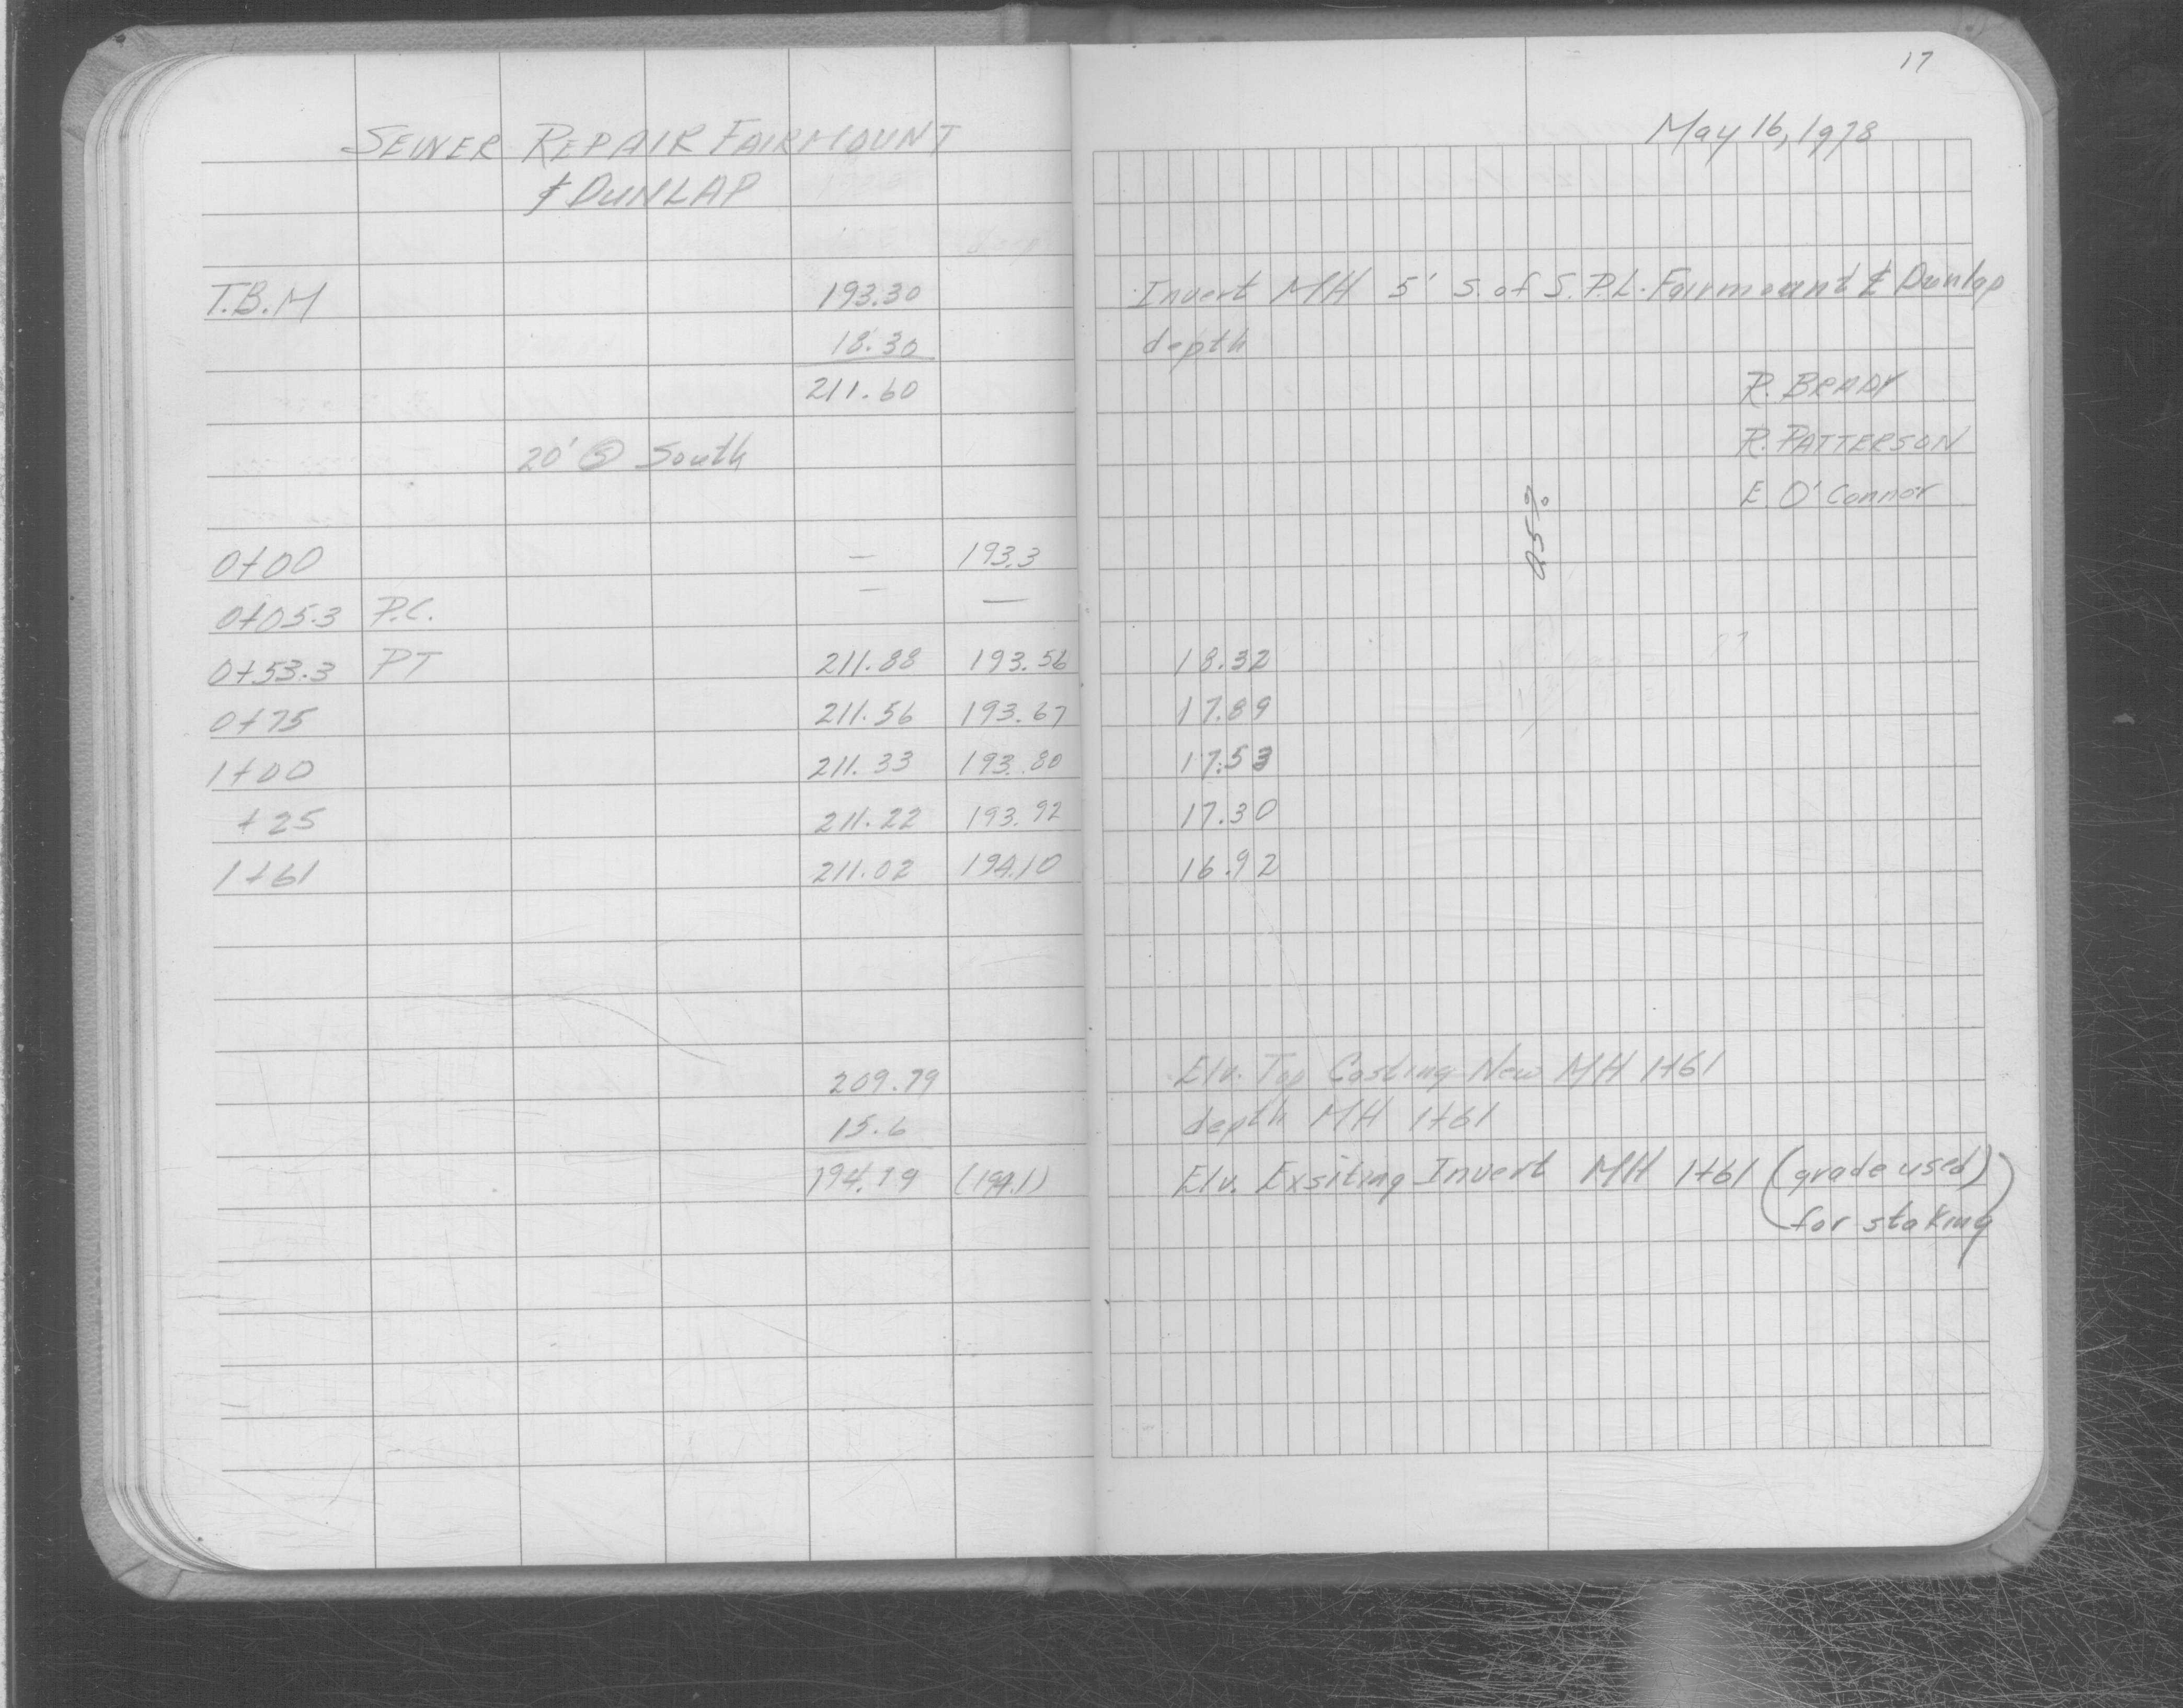 17
SEWER REPAIR FAIRMOUNT
& DUNLAP
May 16, 1978
T.B.M 193.30 Invert MH 5' S. of S.P.L. Fairmount & Dunlap
18.30 depth
211.60 R. BRADY
20' @ South R. PATTERSON
E. O'Connor
0.5%
0+00 — 193.3
0+05.3 P.C. — —
0+53.3 PT 211.88 193.56 18.32
0+75 211.56 193.67 17.89
1+00 211.33 193.80 17.53
+25 211.22 193.92 17.30
1+61 211.02 194.10 16.92
209.79 Elv. Top Casting New MH 1+61
15.6 depth MH 1+61
194.19 (194.1) Elv. Exsiting Invert MH 1+61 (grade used)
for staking